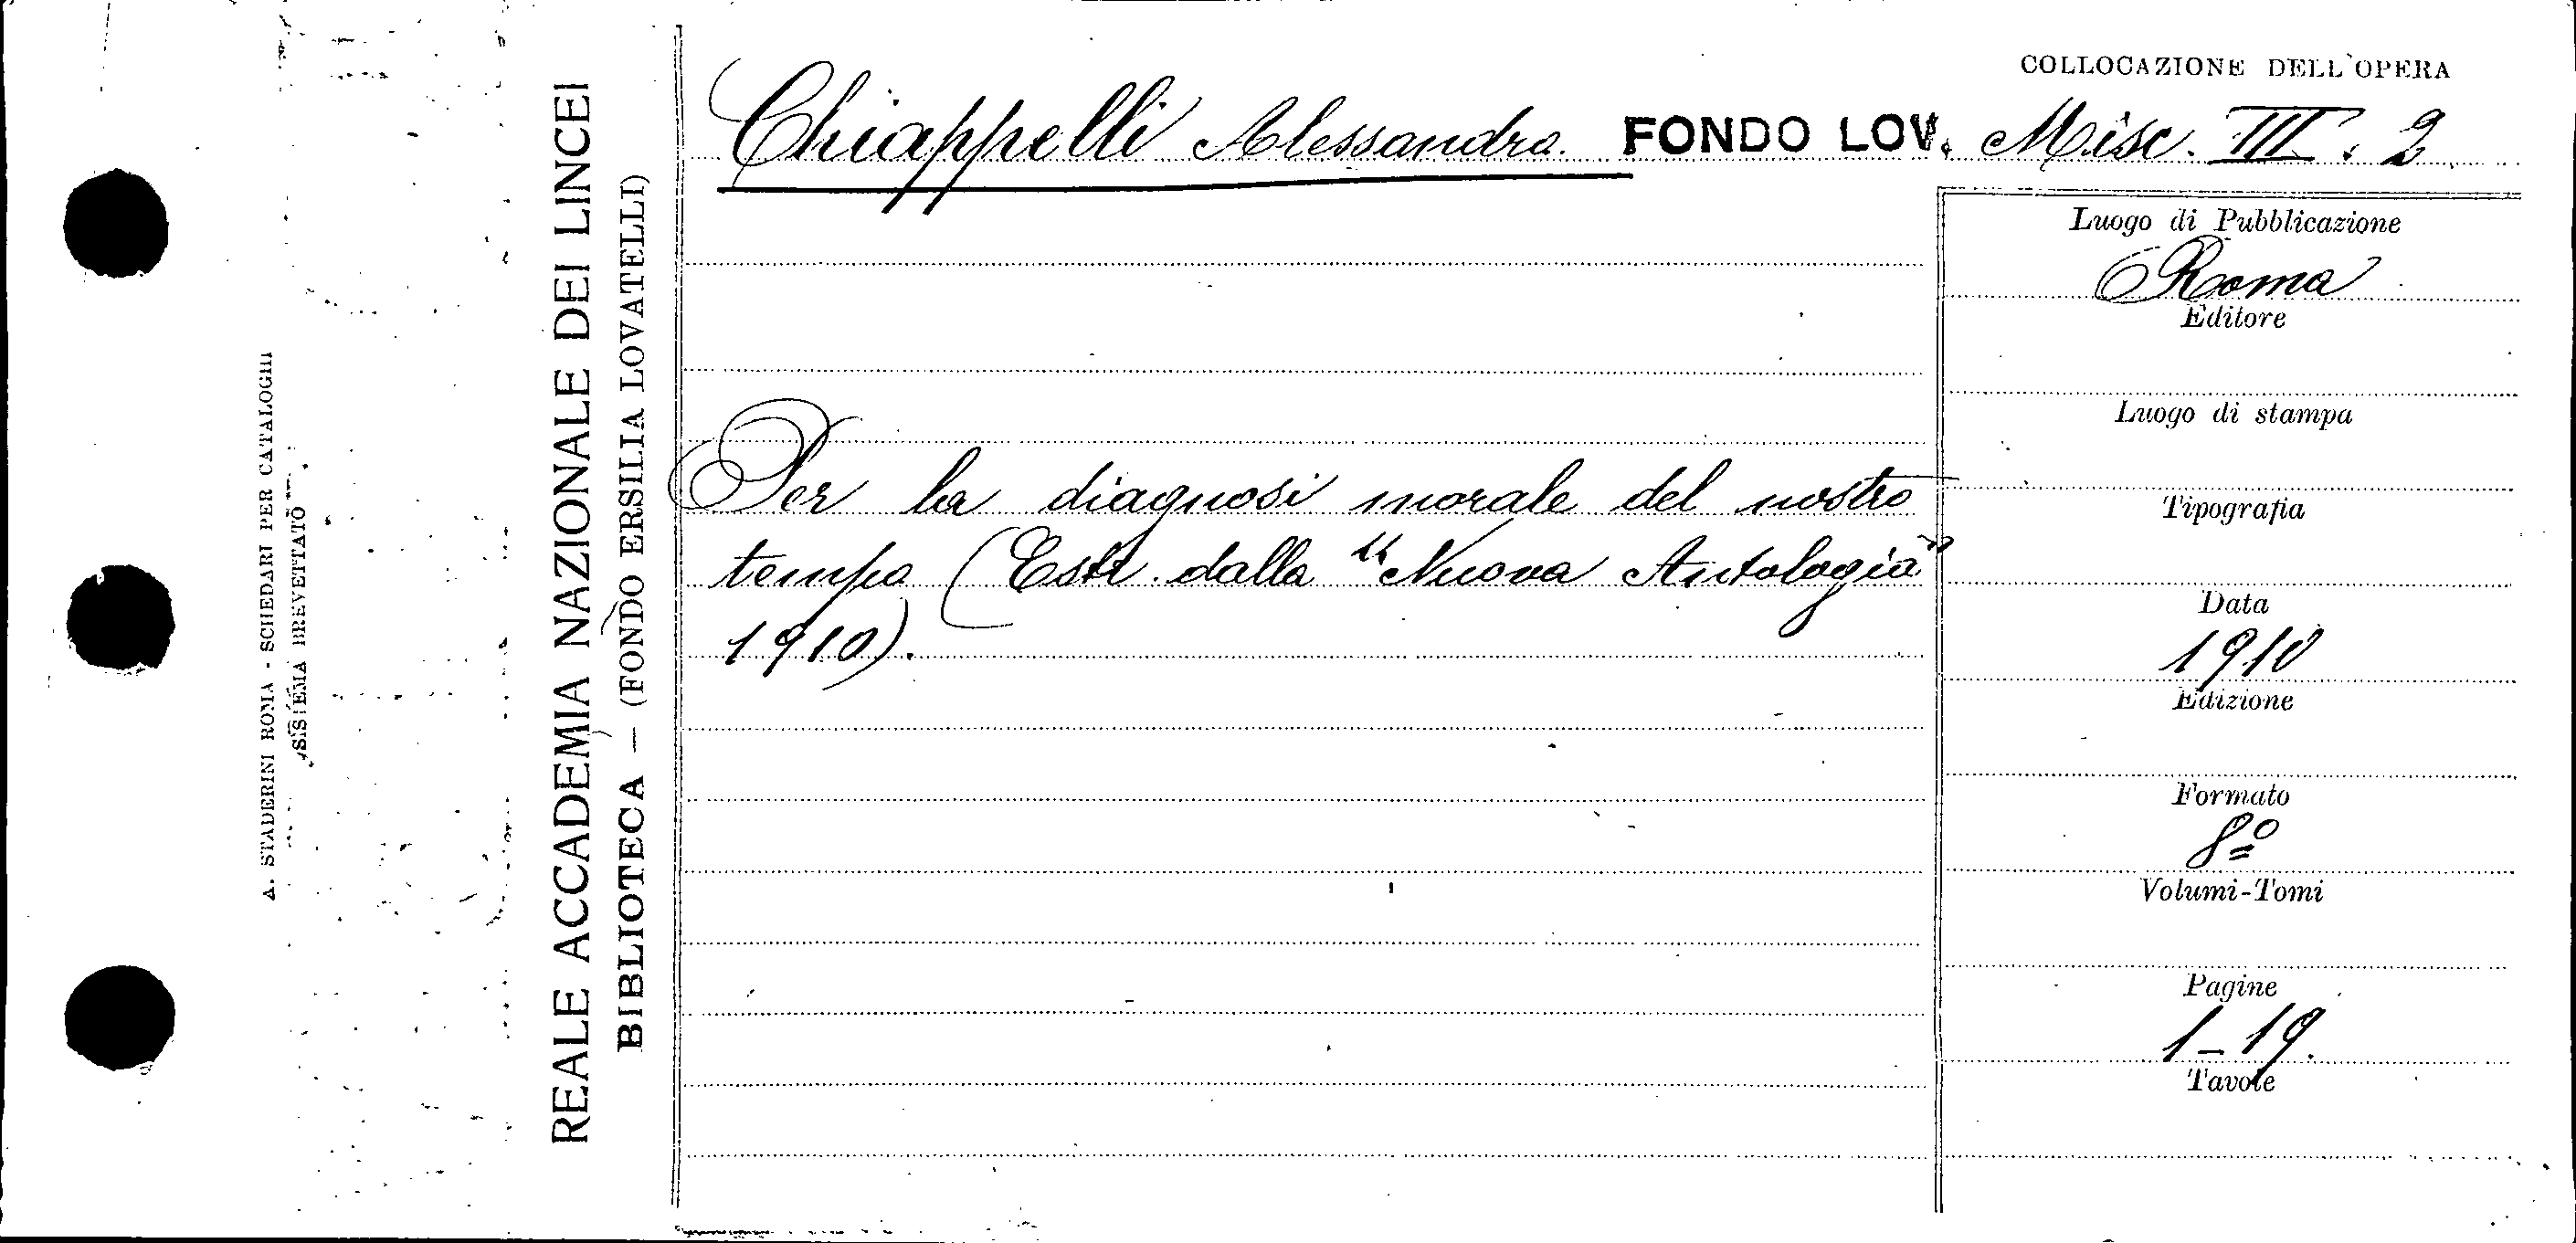 A. STADERINI ROMA - SCHEDARI PER CATALOGHI
SISTEMA BREVETTATO
REALE ACCADEMIA NAZIONALE DEI LINCEI
BIBLIOTECA — (FONDO ERSILIA LOVATELLI)
COLLOCAZIONE DELL'OPERA
Chiappelli Alessandro. FONDO LOV. Misc. III. 2
Per la diagnosi morale del nostro
tempo (Estr. dalla "Nuova Antologia"
1910).
Luogo di Pubblicazione
Roma
Editore
Luogo di stampa
Tipografia
Data
1910
Edizione
Formato
8º
Volumi-Tomi
Pagine
1-19.
Tavole